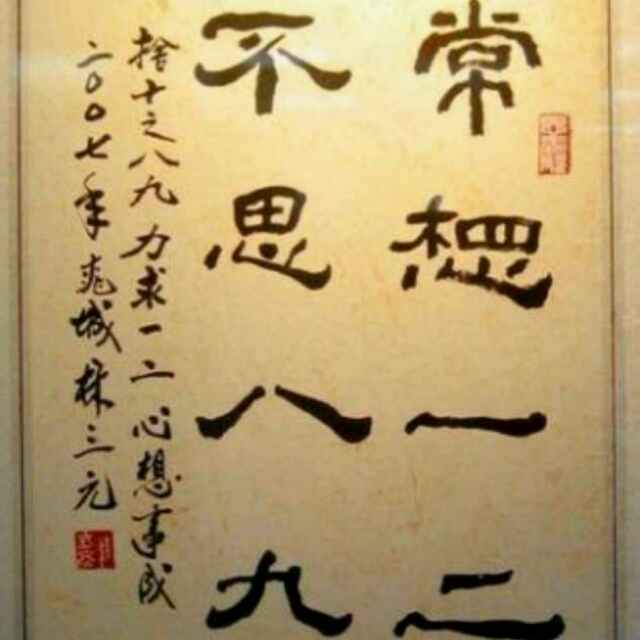 常想一二
不思八九
捨十之八九力求一二心想事成
二〇〇七年兆城林三元